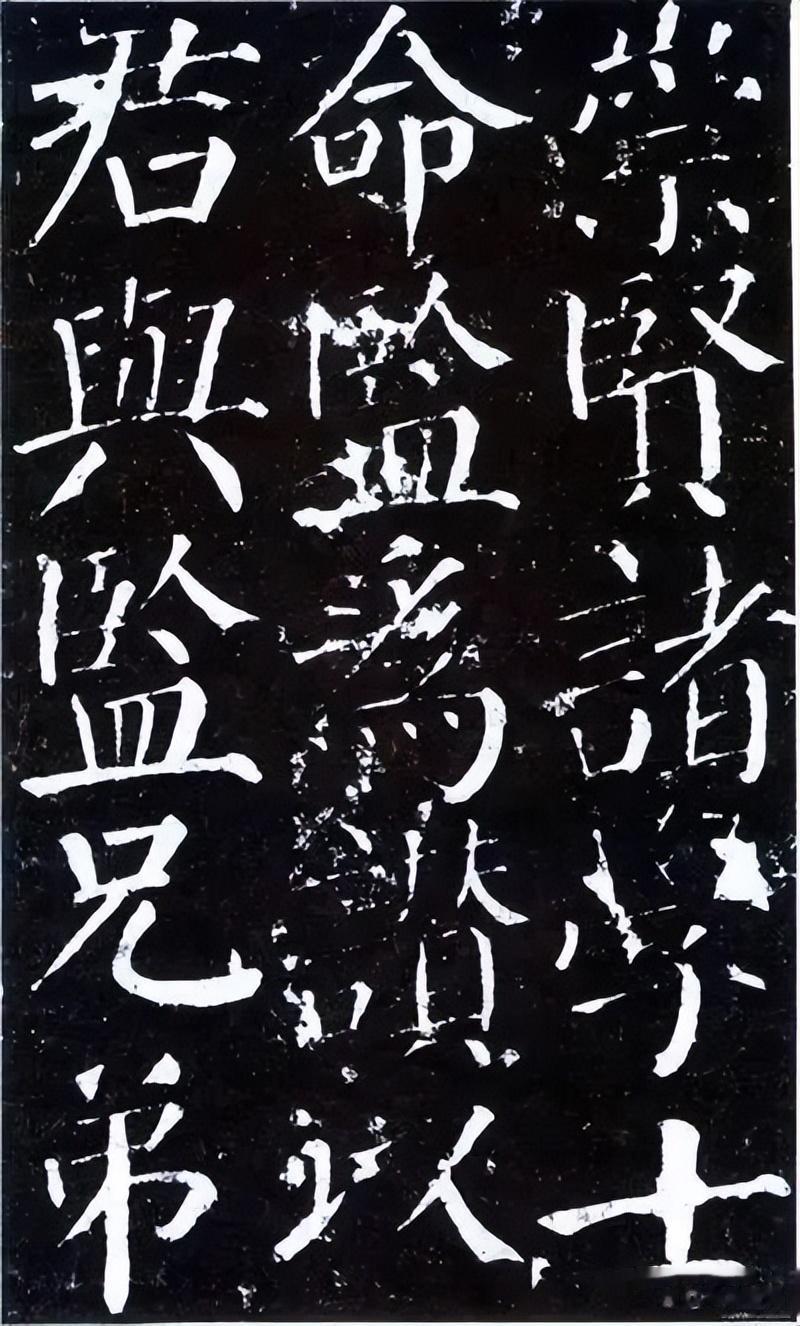 崇賢諸學士
命監爲讚以
君與監兄弟